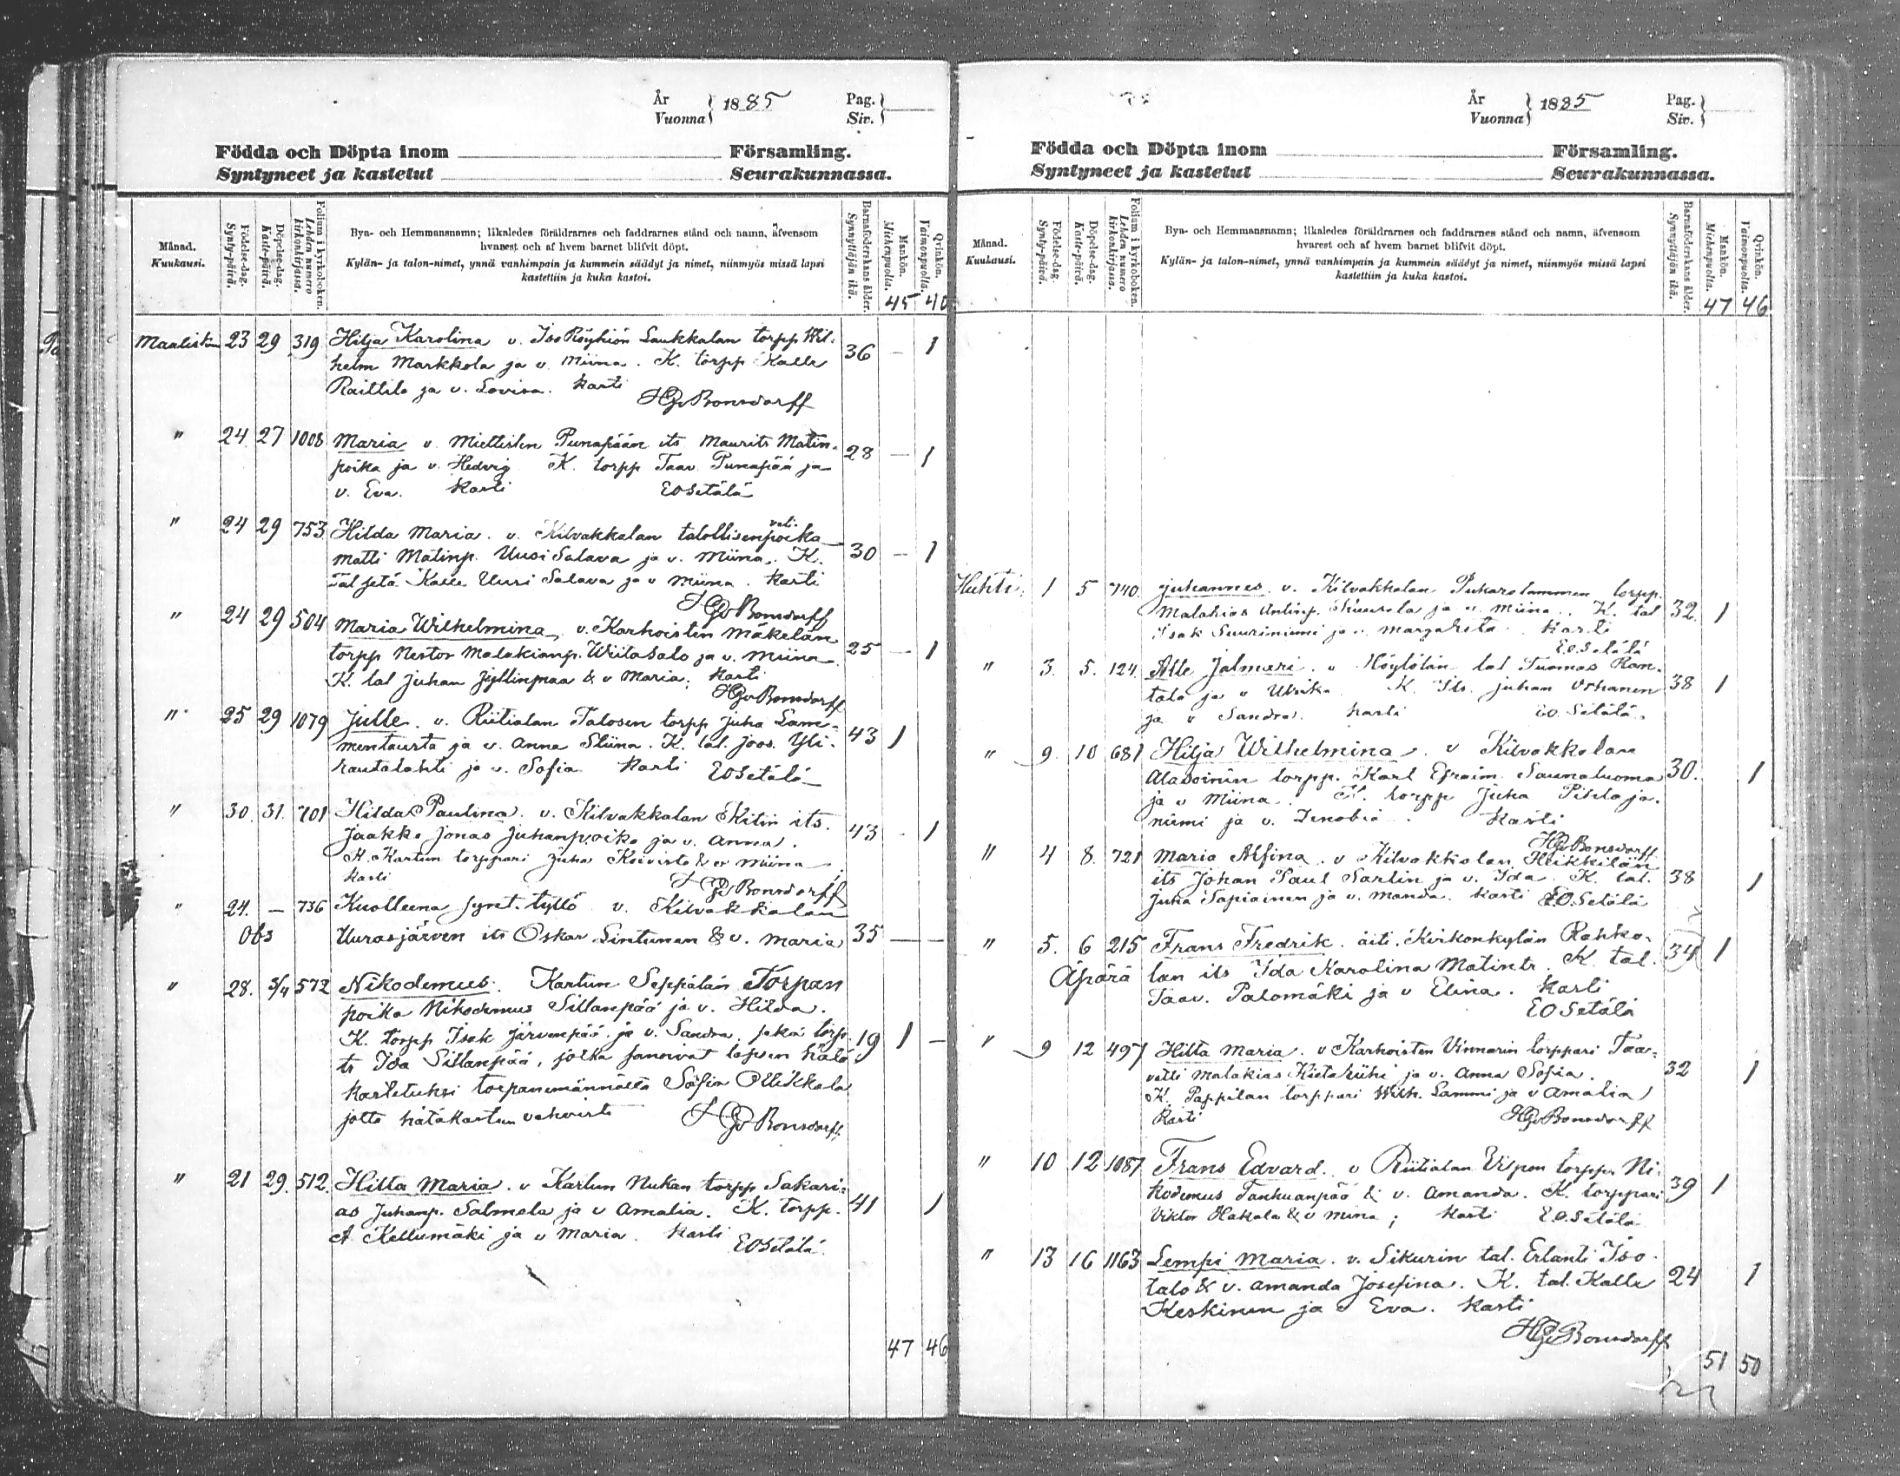 År
Vuonna } 1885
Pag.
Siv. }
Födda och Döpta inom Församling.
Syntyneet ja kastetut Seurakunnassa.
Månad.
Kuukausi.
Födelse-dag.
Synty-päivä.
Döpelse-dag.
Kaste-päivä.
Folium i kyrkoboken.
Lehden numero kirkonkirjassa.
Byn- och Hemmansnamn; likaledes föräldrarnes och faddrarnes stånd och namn, äfvensom
hvarest och af hvem barnet blifvit döpt.
Kylän- ja talon-nimet, ynnä vanhimpain ja kummein säädyt ja nimet, niinmyös missä lapsi
kastettiin ja kuka kastoi.
Barnaföderskans ålder.
Synnyttäjän ikä.
Mankön.
Miehenpuolia.
Qvinkön.
Vaimonpuolia.
45 40
Maalisk 23 29 319 Hilja Karolina v. Iso Röyhiön Laukkalan torpp Wil-
helm Markkola ja v. Miina. K. torpp Kalle 36 — 1
Raittilo ja v. Lovisa. kasti
HGvBonsdorff
" 24 27 1008 Maria v. Miettisten Punapään its Maurits Matin-
poika ja v. Hedvig K. torpp Taav. Punapää ja 28 — 1
v. Eva. kasti EOSetälä
" 24 29 753 Hilda Maria. v. Kilvakkalan talollisenpoika
Matti Matinp. Uusi Salava ja v. Miina. K. 30 — 1
tal setä Kalle Uusi Salava ja v Miina. kasti
HGvBonsdorff
" 24 29 504 Maria Wilhelmina, v. Karhoisten Mäkelän
torpp Nestor Malakianp. Wiitasalo ja v. Miina. 25 — 1
K. tal Juhan Jyllinmaa & v Maria. kasti
HGvBonsdorff
" 25 29 1079 Julle. v. Riitialan Talosen torpp Juha Lam-
mentausta ja v. Anna Stiina. K. tal. Joos. Yli- 43 1
rautalahti ja v. Sofia kasti EOSetälä
" 30. 31. 701 Hilda Paulina. v. Kilvakkalan Kitin its.
Jaakko Jonas Juhanpoika ja v. Anna. 43 - 1
K. Kartun torppari Juha Koivisto & v Miina
kasti HGvBonsdorff
" 24. — 736 Kuolleena synt. tyttö v. Kilvakkalan
Obs Uurasjärven its Oskar Lintunen & v. Maria 35 — —
" 28. 5/4 572 Nikodemus. Kartun Seppälän Torpan
poika Nikodemus Sillanpää ja v. Hilda.
K. torpp Isak Järvenpää ja v. Sandra, sekä torp. 19 1 —
ts Ida Sillanpää, jotka sanoivat lapsen hätä
kastetuksi torpanemännältä Sofia Ollikkala
jotta hätäkasteen vahvisti HGvBonsdorff.
" 21 29. 512. Hilta Maria. v Kartun Nukan torpp Sakari-
as Juhanp. Salmela ja v Amalia. K. torpp. 41 1
A Kellumäki ja v Maria. kasti
EOSetälä
47 46
År
Vuonna } 1885
Pag.
Siv. }
Födda och Döpta inom Församling.
Syntyneet ja kastetut Seurakunnassa.
Månad.
Kuukausi.
Födelse-dag.
Synty-päivä.
Döpelse-dag.
Kaste-päivä.
Folium i kyrkoboken.
Lehden numero kirkonkirjassa.
Byn- och Hemmansnamn; likaledes föräldrarnes och faddrarnes stånd och namn, äfvensom
hvarest och af hvem barnet blifvit döpt.
Kylän- ja talon-nimet, ynnä vanhimpain ja kummein säädyt ja nimet, niinmyös missä lapsi
kastettiin ja kuka kastoi.
Barnaföderskans ålder.
Synnyttäjän ikä.
Mankön.
Miehenpuolia.
Qvinkön.
Vaimonpuolia.
47 46
Huhti. 1 5 740. Juhannes v. Kilvakkalan torpp.
Malakias Antinp. ja v. Miina. K. tal 32. 1
Isak Suuriniemi ja v. Margareta. kasti
E.O.Setälä
" 3. 5. 124. Alle Jalmari. v Höytölän tal Tuomas Ran-
tala ja v Ulrika K. Its. Juhan 38 1
ja v Sandra. kasti EO. Setälä.
" 9. 10 681 Hilja Wilhelmina. v Kilvakkalan
torpp. Karl Efraim Saunaluoma 30. 1
ja v Miina. K. torpp Juha Pihlaja-
niemi ja v. Zenobia. kasti
HGvBonsdorff
" 4 8. 721 Maria Alfina. v Kilvakkalan Heikkilän
its Johan Paul Sarlin ja v. Ida. K. tal. 38 1
Juha Sapiainen ja v. Manda. kasti E.O.Setälä
" 5. 6 215 Frans Fredrik. äiti. Kirkonkylän Rahko-
Apärä lan its Ida Karolina Matintr. K. tal. 34 1
Taav. Palomäki ja v Elina. kasti
EOSetälä
" 9 12 497 Hilta Maria. v Karhoisten Vinnarin torppari Taa-
vetti Malakias ja v. Anna Sofia. 32 1
K. Pappilan torppari Wilh. Lammi ja v Amalia
kasti HGvBonsdorff
" 10 12 1087 Frans Edvard. v Riitialan Vispon torpp. Ni-
kodemus Tanhuanpää & v. Amanda. K. torppari 39 1
Viktor Hakala & v Mina; kasti E.O.Setälä
" 13 16 1163 Lempi Maria. v. Sikurin tal. Erlanti Iso-
talo & v. Amanda Josefina. K. tal. Kalle 24 1
Keskinen ja v Eva. kasti
HGvBonsdorff
51 50